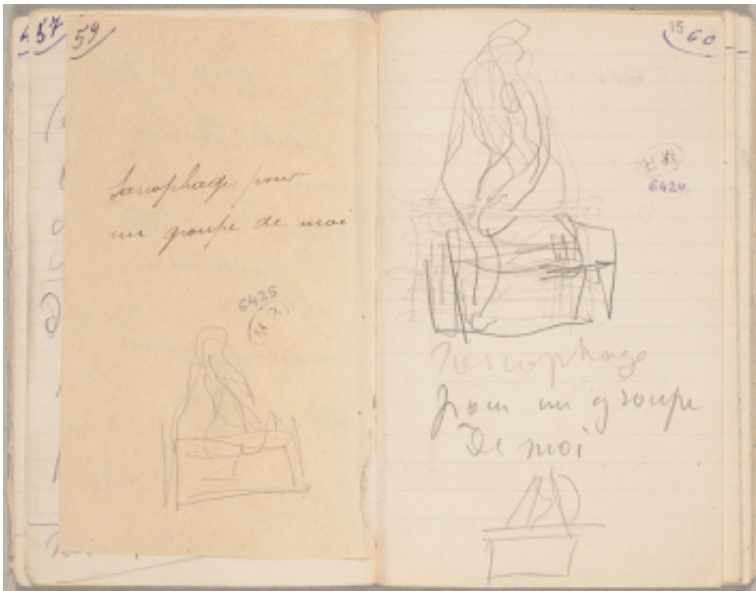 57
59
Sarcophage pour
un groupe de moi
6425
15
60
6424.
pour un groupe
de moi